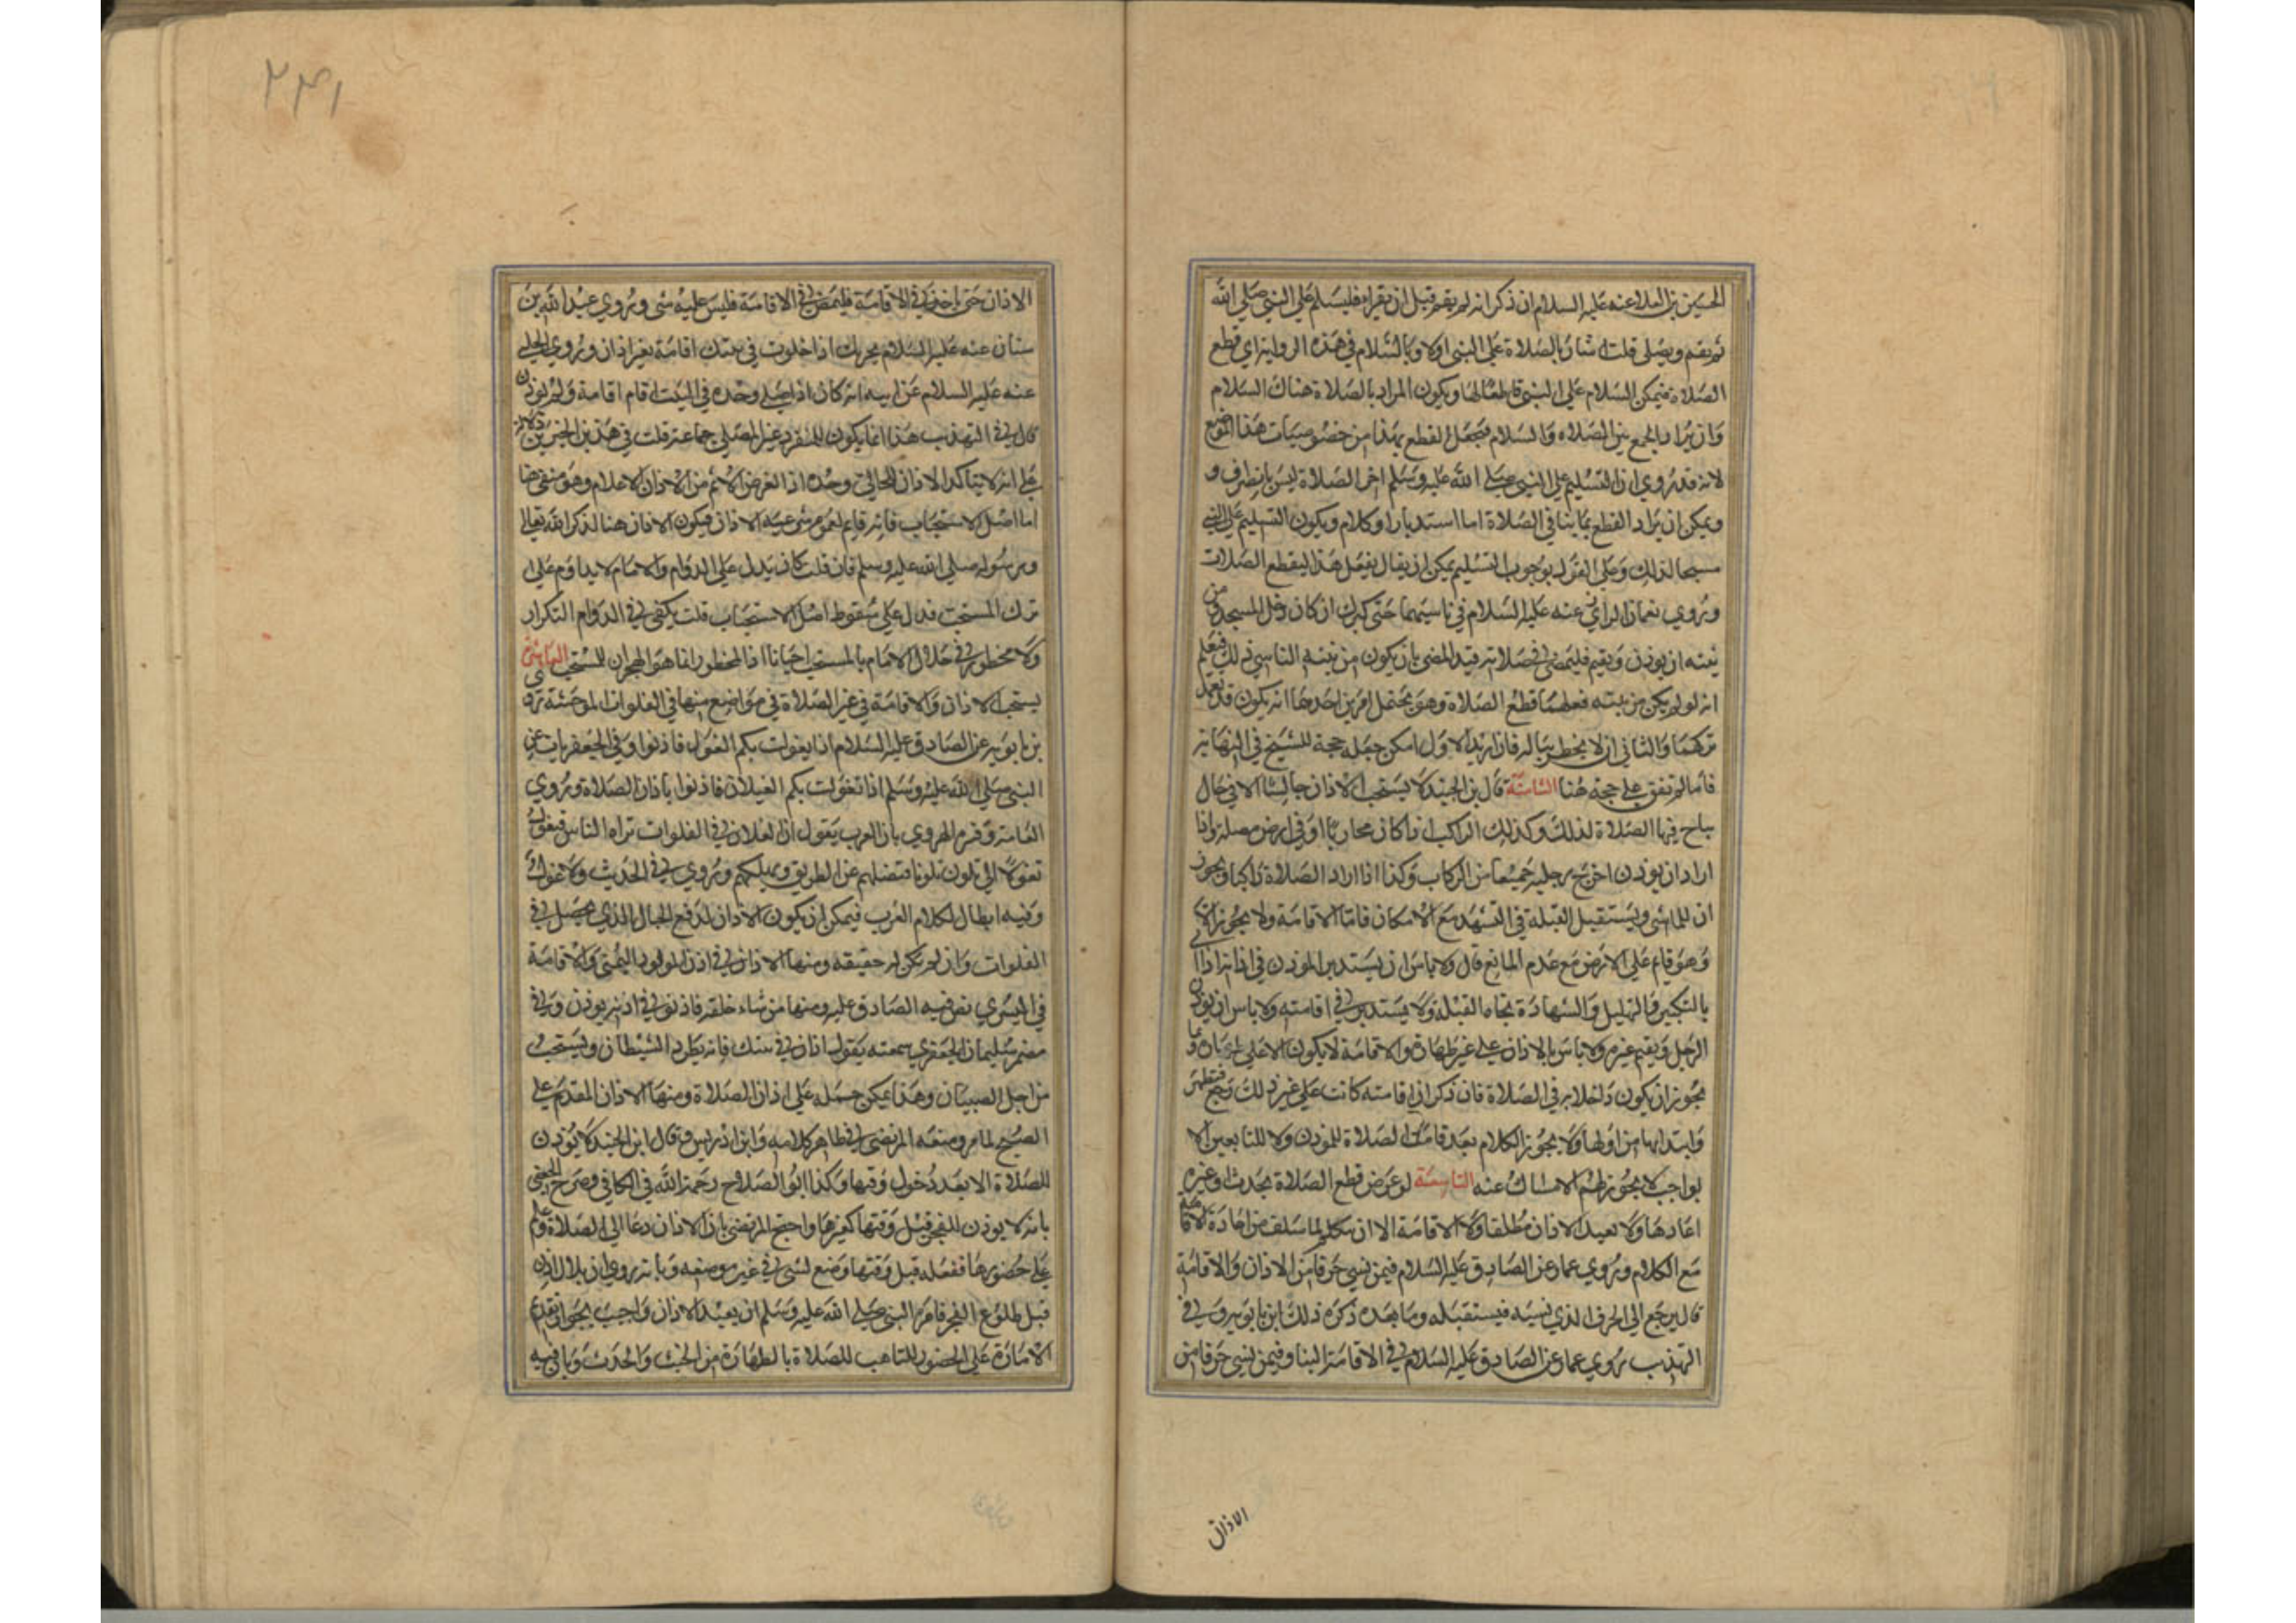 الحسين بن العلا عنه عليه السلام ان ذكر انه لم يقم قبل ان يقراء فليسلم علي النبي صلي الله
ثم يقم ويصلي قلت اشار بالصلاة علي النبي اولا وبالسلام في هذه الرواية اي قطع
الصلاة فيمكن السلام علي النبي قاطعا لها ويكون المراد بالصلاة هناك السلام
وان يراد بالجمع بين الصلاه والسلام فيجعل القطع بهذا من خصوصيات هذا الموضع
لانه قد روي ان التسليم علي النبي صلي الله عليه وسلم اخر الصلاة ليس بانصراف و
ويمكن ان يراد القطع بما ينافي الصلاة اما استدبار او كلام ويكون التسليم علي النبي
مبيحا لذلك وعلي القول بوجوب التسليم يمكن ان يقال يفعل هذا ليقطع الصلات
وروي نعمان الرازي عنه عليه السلام في ناسيهما حتي كبر ان كان دخل المسجد ومن
نيته ان يوذن ويقيم فليمض في صلاته قيد المضي بان يكون من نيته الناسي ذلك فيعلم
انه لو لم يكن من نيته فعلهما قطع الصلاة وهو يحتمل امرين احدهما انه يكون قد تعمد
تركهما والثاني ان لا يخطر بباله فان اريد الاول امكن جعله حجة للشيخ في النهاية
فانا لم نقف علي حجته هنا الثامنة قال بن الجنيد لا يستحب الاذان جالسا الا في حال
يباح فيها الصلاة لذلك وكذلك الراكب اذا كان محاربا او في ارض مصلة واذا
اراد ان يوذن اخرج رجليه جميعا من الركاب وكذا اذا اراد الصلاة راكبا ويجوز
ان للماشي ويستقبل القبلة في التشهد مع الامكان فاما الاقامة ولا يجوز الا
وهو قايم علي الارض مع عدم المانع قال ولا باس ان يستدير الموذن في اذانه اذا
بالتكبير والتهليل والشهادة تجاه القبلة ولا يستدير في اقامته ولا باس ان يوذن
الرجل ويقيم غيره ولا باس بالاذان علي غير طهارة والاقامة لا يكون الا علي
يجوز ان يكون داخلا به في الصلاة فان ذكر ان اقامته كانت علي غير ذلك رجع فتطهر
وابتدا بها من اولها ولا يجوز الكلام بعد قامت الصلاة للموذن ولا للتابعين الا
بواجب لا يجوز لهم الامساك عنه التاسعة لو عرض قطع الصلاة بحدث او غيره
اعادها ولا يعيد الاذان مطلقا ولا الاقامة الا ان تكلم لما سلف من اعادة الاقامة
مع الكلام وروي عمار عن الصادق عليه السلام فيمن نسي حرفا من الاذان والاقامة
قال يرجع الي الحرف الذي نسيه فيستقبله وما بعده ذكره ذلك ابن بابويه وفي
التهذيب روي عمار عن الصادق عليه السلام في الاقامة البنا وفيمن نسي حرفا من
الاذان
٢٣١
الاذان حتي ياخذ في الاقامة فليمض في الاقامة فليس عليه شي وروي عبد الله بن
سنان عنه عليه السلام يجزيك اذا خلوت في بيتك اقامة بغير اذان وروي الحلبي
عنه عليه السلام عن ابيه انه كان اذا صلي وحده في البيت اقام اقامة ولم يوذن
قال في التهذيب هذا انما يكون للمنفرد غير المصلي جماعة قلت في هذين الخبرين دلالة
علي انه لا يتاكد الاذان للخالي وحده اذ الغرض الاهم من الاذان الاعلام وهو منفي هنا
اما اصل الاستحباب فانه قايم لعموم شرعية الاذان فيكون الاذان هنا لذكر الله تعالي
ورسوله صلي الله عليه وسلم فان قلت كان يدل علي الدوام والامام لا يداوم علي
ترك المستحب فدل علي سقوط اصل الاستحباب قلت يكفي في الدوام التكرار
ولا محظور في خلال الامام بالمستحب احيانا اذ المحظور انما هو الهجران للمستحب العاشرة
يستحب الاذان والاقامة في غير الصلاة في مواضع منها في الفلوات الموحشة روي
بن بابويه عن الصادق عليه السلام اذا تغولت بكم الغول فاذنوا وفي الجعفريات عن
النبي صلي الله عليه وسلم اذا تغولت بكم الغيلان فاذنوا باذان الصلاة وروي
العامة وفسره الهروي بان العرب يقول ان الغلان في الفلوات تراه الناس فيغول
تغولا اي تلون تلونا فتضلهم عن الطريق ويهلكهم وروي في الحديث ولا غول
وفيه ابطال لكلام العرب فيمكن ان يكون الاذان لدفع الخيال الذي يحصل في
الفلوات وان لم يكن له حقيقه ومنها الاذان في اذن المولود اليمني والاقامة
في اليسري نص فيه الصادق عليه ومنها من ساء خلقه فاذنوا في اذنيه يوذن وفي
مضمر سليمان الجعفري سمعته يقول اذان في بيتك فانه يطرد الشيطان ويستحب
من اجل الصبيان وهذا يمكن حمله علي اذان الصلاة ومنها الاذان المقدم علي
الصبح لما مر ومنعه المرتضي في ظاهر كلامه وابن ادريس وقال ابن الجنيد لا يوذن
للصلاة الا بعد دخول وقتها وكذا ابو الصلاح رحمة الله في الكافي وصرح الجعفي
بانه لا يوذن للفجر قبل وقتها كغيرها واحتج المرتضي بان الاذان دعا الي الصلاة وعلم
علي حضورها ففعله قبل وقتها وضع لشي في غير موضعه وبانه روي ان بلالا اذن
قبل طلوع الفجر فامره النبي صلي الله عليه وسلم ان يعيد الاذان واجيب بجواز تقدم
الامارة علي الحضور للتاهب للصلاة بالطهارة من الخبث والحدث وبان فيه